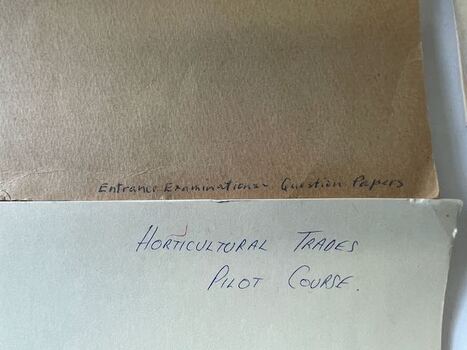 Entrance Examinations - Question Papers
HORTICULTURAL TRADES
PILOT COURSE.